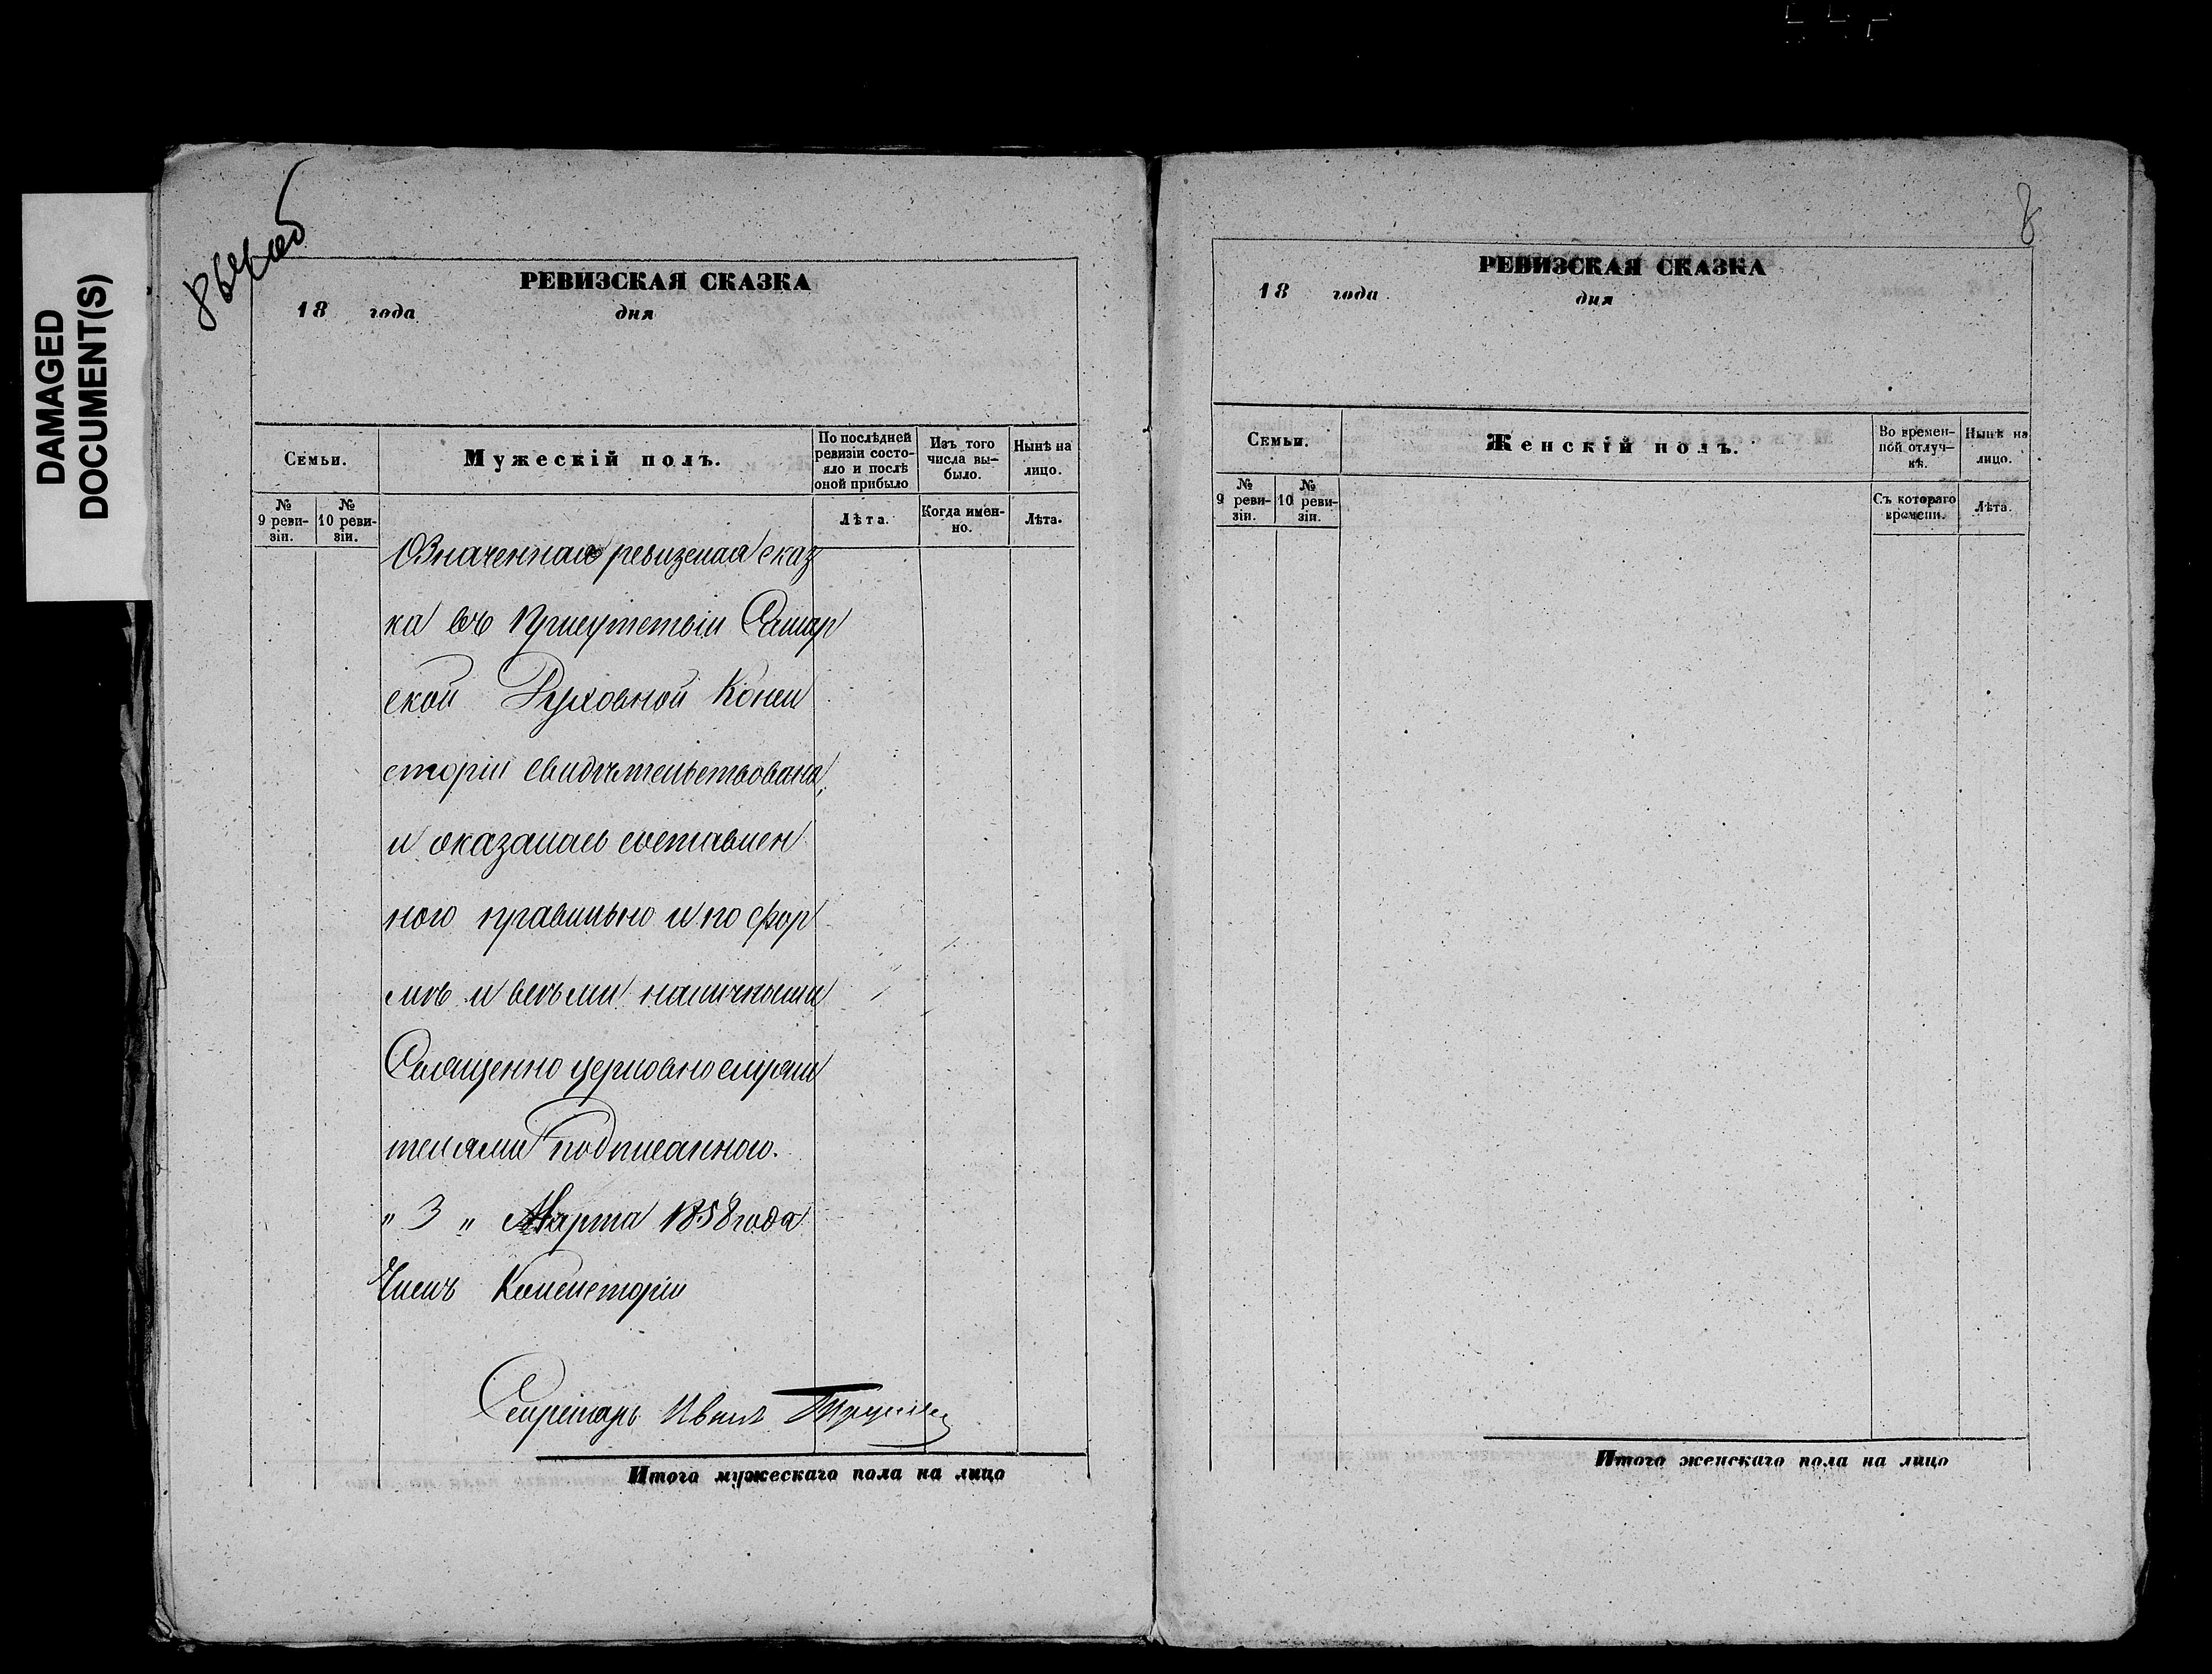 DAMAGED
DOCUMENT(S)
РЕВИЗСКАЯ СКАЗКА
18 года дня
Семьи.
Мужескій полъ.
По послѣдней
ревизіи состо-
яло и послѣ
оной прибыло
Изъ того
числа вы-
было.
Нынѣ на
лицо.
№
9 реви-
зіи.
№
10 реви-
зіи.
Лѣта.
Когда имен-
но.
Лѣта.
Означенная ревизская сказ
ка въ Присутствіи Самар
ской Духовной Конси
сторіи свидѣтельствована,
и оказалась составлен
ною правильно и по фор
мѣ и всѣми наличными
Священно церковно служи
телями подписанною.
" 3 " Марта 1858 года
Членъ Консисторіи
Секретарь Иванъ
Итого мужескаго пола на лицо
8
РЕВИЗСКАЯ СКАЗКА
18 года дня
Семьи.
Женскій полъ.
Во времен-
ной отлуч-
кѣ.
Нынѣ на
лицо.
№
9 реви-
зіи.
№
10 реви-
зіи.
Съ котораго
времени.
Лѣта.
Итого женскаго пола на лицо